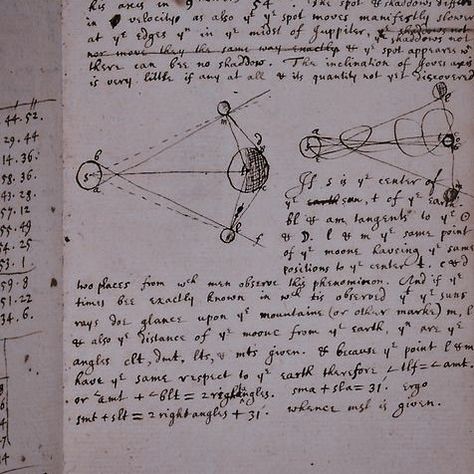 44.52.
29.44
14.36.
58.36
43.28
57.12
55.49
54.25
53.1
59.8
51.22
34.6.
his axis in 9 54. The spot & shaddows differ
in velocity as also ye ye spot moves manifestly slower
at ye edges yn in ye midst of Juppiter, ye shaddows not
nor move they the same way exactly & ye spot appears wn
there can bee no shaddow. The inclination of Joves axis
is very little if any at all & its quantity not yet discovered
If s is ye center of
ye earth sun, t of ye earth
bl & am tangents to ye
& D. l & m ye same point
of ye moone having ye same
positions to ye center t. c & d
two places from wch men observe this phenominon. And if ye
times bee exactly known in wch tis observed yt ye suns
rays doe glance upon ye mountaine (or other marke) m, l
& also ye distance of ye moone from ye earth, yn are ye
angles clt, dmt, lts, & mts given. & because ye point l & m
have ye same respect to ye earth therefore <tlf = <amt.
or <amt + <blt = 2 right angles. sma + sla = 31. ergo
smt + slt = 2 right angles + 31. whence mst is given.